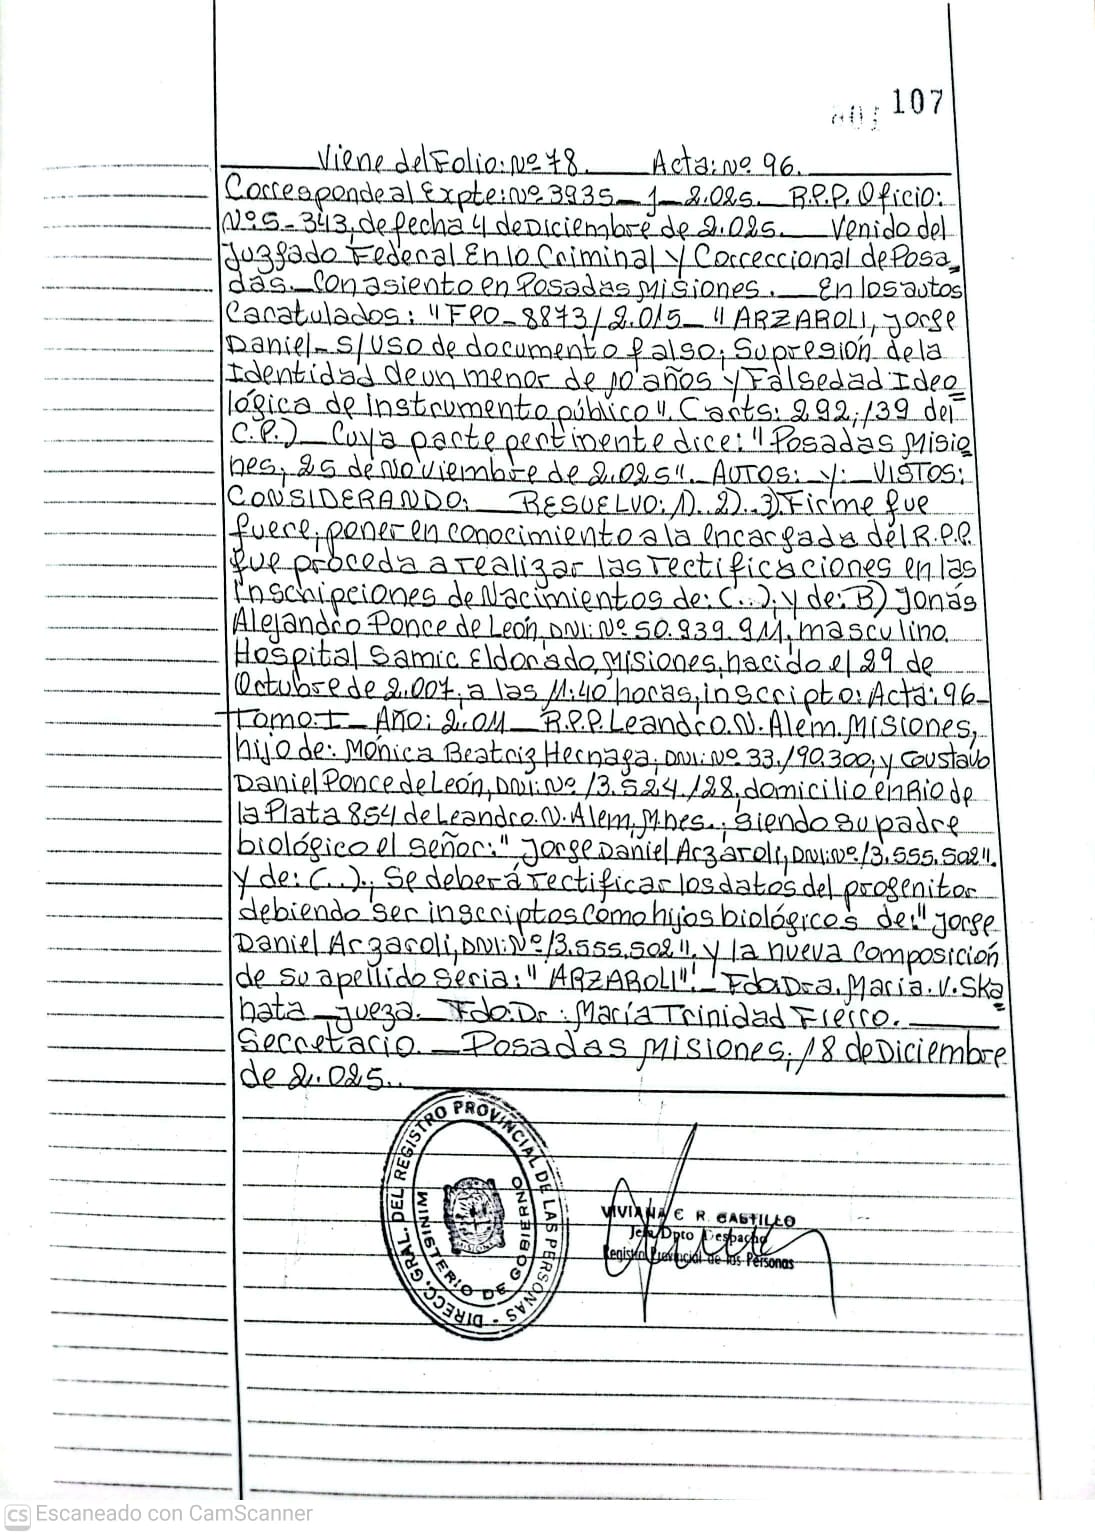 107
Viene del Folio: Nº 78. Acta: Nº 96.
Corresponde al Expte: Nº 3935-J-2.025. R.P.P. Oficio:
Nº: S-343, de fecha 4 de Diciembre de 2.025. Venido del
Juzgado Federal En lo Criminal y Correccional de Posa=
das. Con asiento en Posadas Misiones. En los autos
Caratulados: "FPO-8873/2.015- "ARZAROLI, Jorge
Daniel-S/USO de documento falso, Supresión de la
Identidad de un menor de 10 años y Falsedad Ideo=
lógica de Instrumento público". Carts: 292, 139 del
C.P.) Cuya parte pertinente dice: "Posadas Misio=
nes, 25 de Noviembre de 2.025". AUTOS: Y: VISTOS:
CONSIDERANDO: RESUELVO: 1).. 2).. 3) Firme que
fuere, poner en conocimiento a la encargada del R.P.P.
que proceda a realizar las rectificaciones en las
inschipciones de Nacimientos de: (...), y de: B) Jonás
Alejandro Ponce de León, DNI: Nº 50.939.911, masculino,
Hospital Samic Eldorado, Misiones, nacido el 29 de
Octubre de 2.007, a las 11:40 horas, inscripto: Acta: 96-
Tomo: I- Año: 2.011- R.P.P. Leandro. N. Alem. Misiones,
hijo de: Mónica Beatriz Hernaga, DNI: Nº 33.190.300, y Goustavo
Daniel Ponce de León, DNI: Nº 13.524.128, domicilio en Rio de
la Plata 854 de Leandro. N. Alem, Mnes., siendo su padre
biológico el señor: "Jorge Daniel Arzaroli, DNI: Nº 13.555.502".
Y de: (...), Se deberá rectificar los datos del progenitor
debiendo ser inscriptos como hijos biológicos de: "Jorge
Daniel Arzaroli, DNI: Nº 13.555.502", y la nueva composición
de su apellido sería: "ARZAROLI"- Fdo: Dra. Maria. V. Ska
nata - Jueza. Fdo: Dr: María Trinidad Fierro.
Secretario. - Posadas Misiones, 18 de Diciembre
de 2.025..
DIRECC. GRAL. DEL REGISTRO PROVINCIAL DE LAS PERSONAS -
MINISTERIO DE GOBIERNO
MISIONES
VIVIANA E R. CASTILLO
Jefe Dpto Despacho
Registro Provincial de las Personas
CS Escaneado con CamScanner